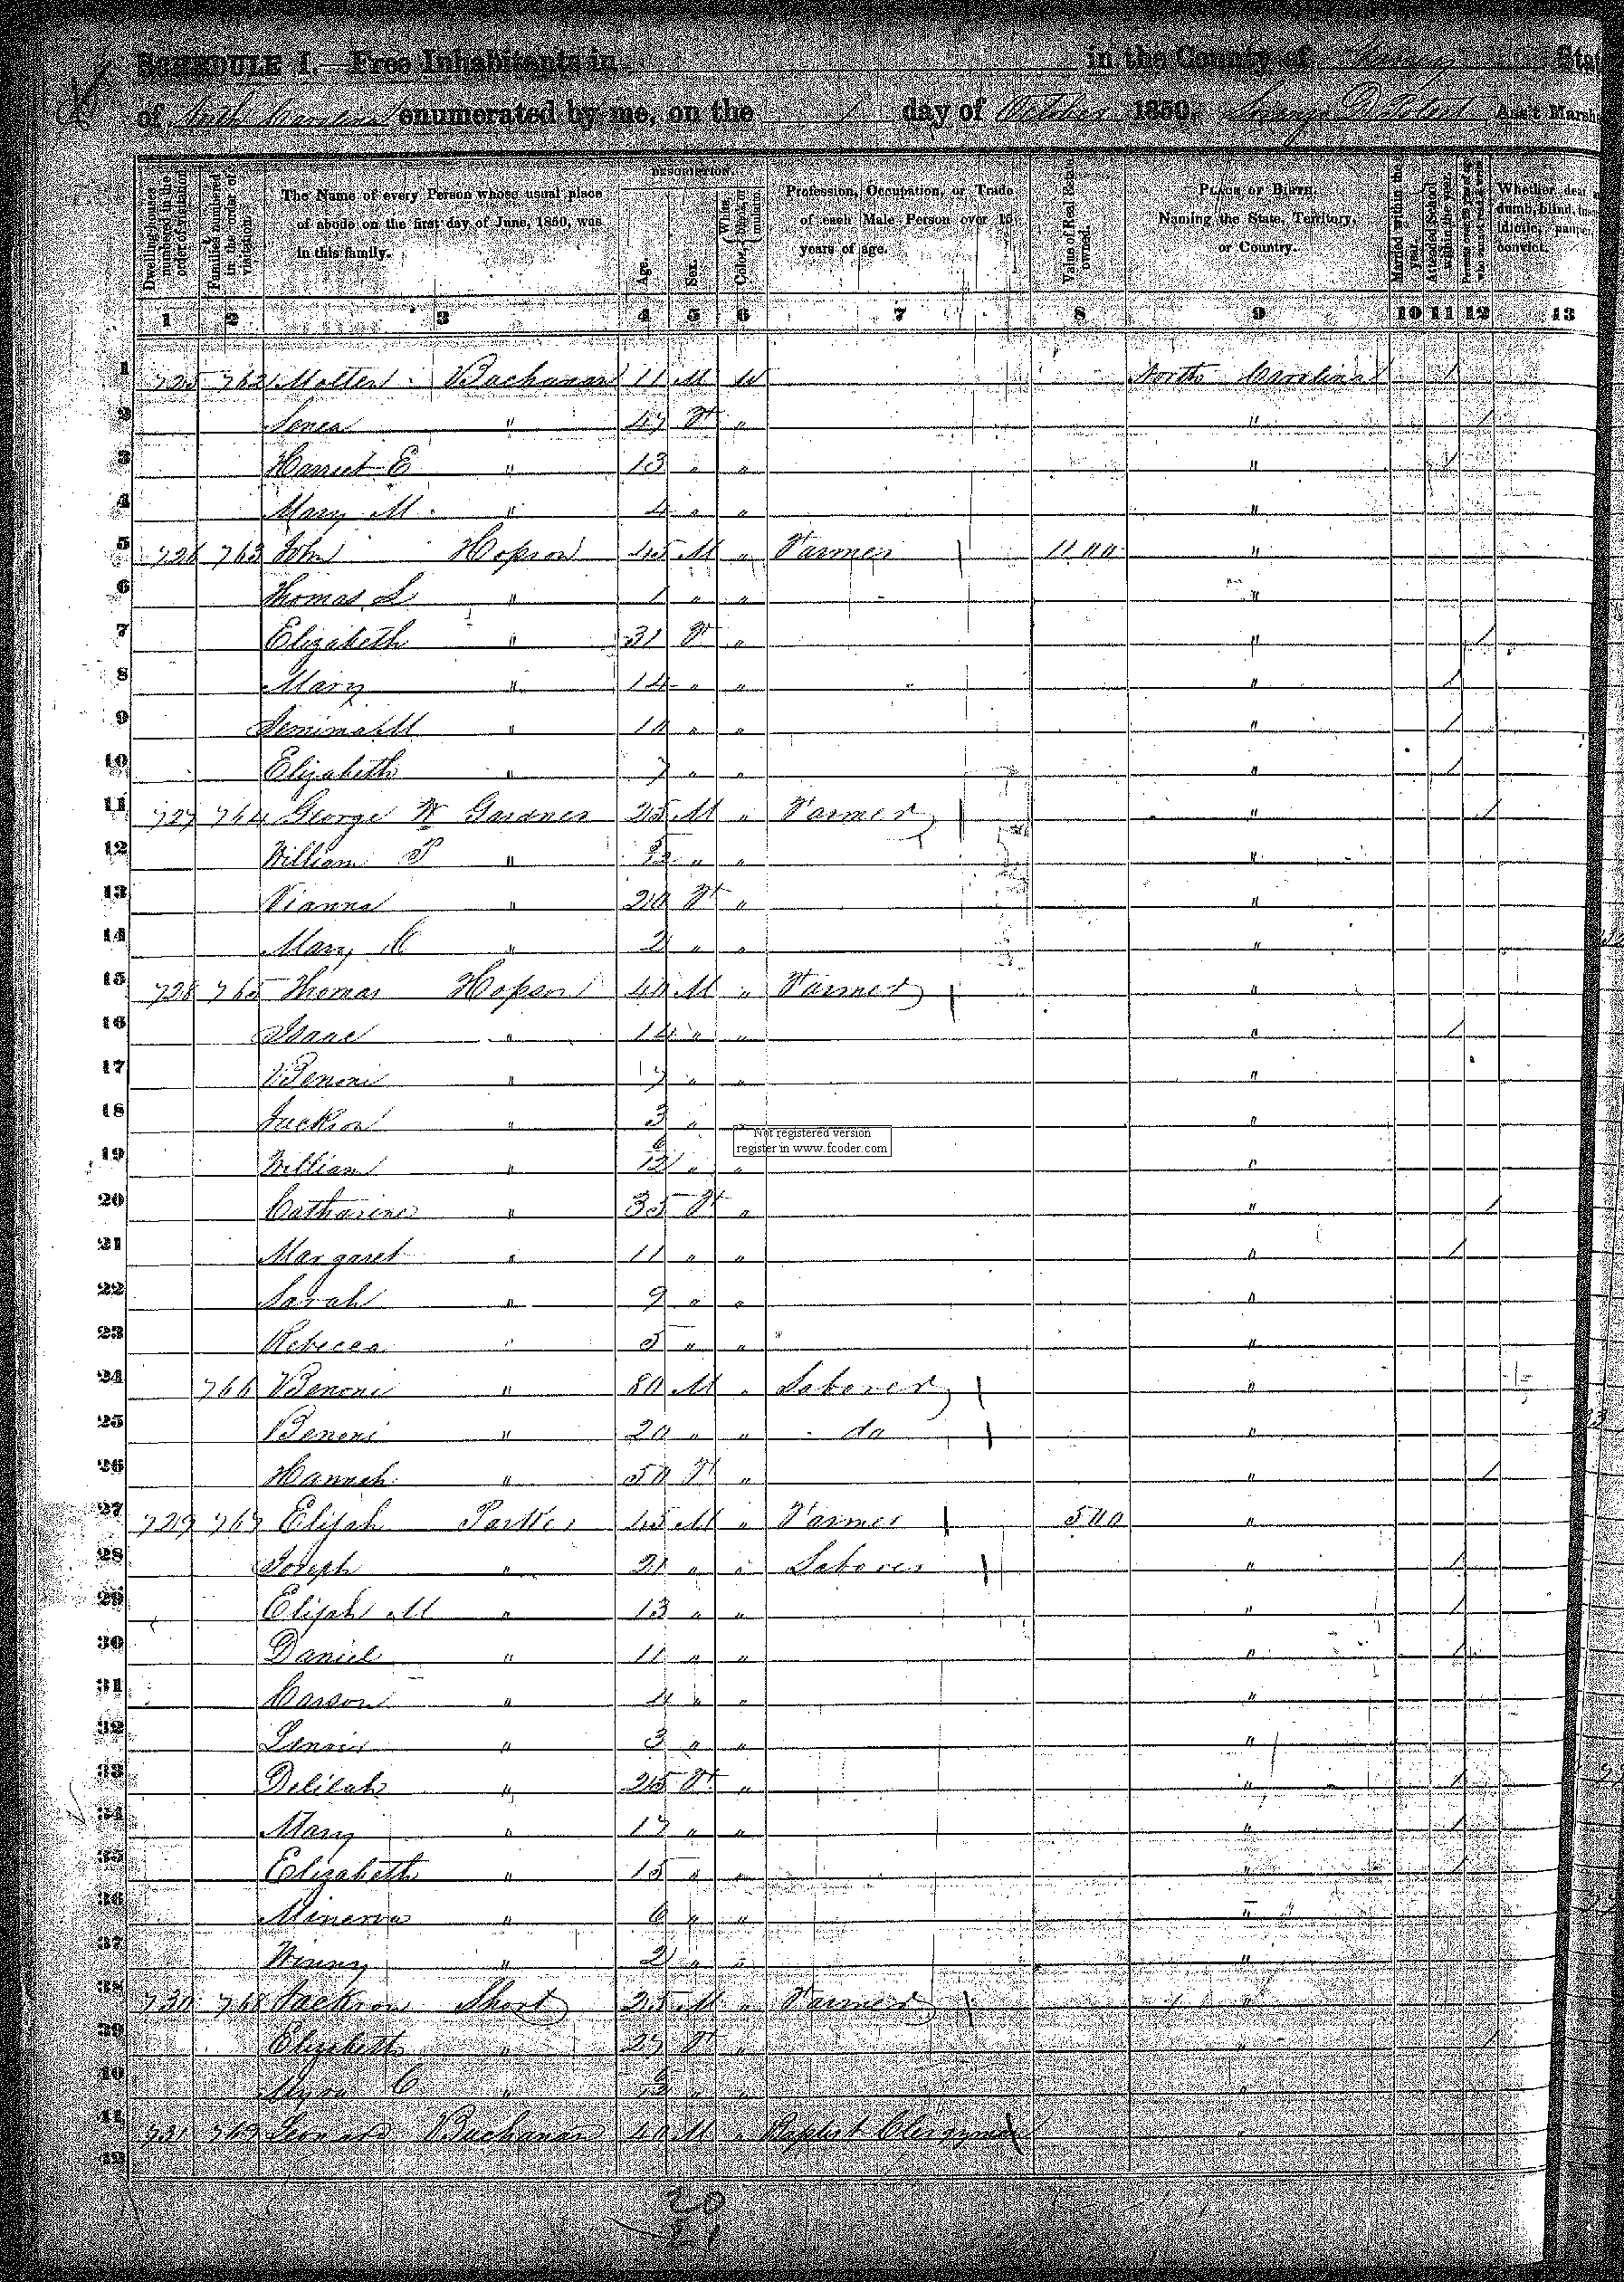 SCHEDULE I.—Free Inhabitants in in the County of Yancy State
of North Carolina enumerated by me, on the 1 day of October 1850. Ass't Marsh
Dwelling-houses numbered in the order of visitation.
Families numbered in the order of visitation.
The Name of every Person whose usual place of abode on the first day of June, 1850, was in this family.
DESCRIPTION.
Age.
Sex.
Color, White, black, or mulatto.
Profession, Occupation, or Trade of each Male Person over 15 years of age.
Value of Real Estate owned.
PLACE OF BIRTH. Naming the State, Territory, or Country.
Married within the year.
Attended School within the year.
Persons over 20 y'rs of age who cannot read & write.
Whether deaf and dumb, blind, insane, idiotic, pauper, convict.
1 2 3 4 5 6 7 8 9 10 11 12 13
1 725 762 Buchanan 11 M W North Carolina 1
2 " 47 F " " 1
3 Harriet E " 13 " " " 1
4 Mary M " 4 " " "
5 726 763 John Hopson 45 M " Farmer 1100 "
6 Thomas L " 1 " " "
7 Elizabeth " 31 F " " 1
8 Mary " 14 " " " 1
9 Jemima M " 10 " " " 1
10 Elizabeth " 7 " " " 1
11 727 764 George W Gardner 25 M " Farmer " 1
12 William P " 5/12 " " "
13 Vianna " 20 F " "
14 Mary C " 2 " " "
15 728 765 Thomas Hopson 40 M " Farmer "
16 Isaac " 14 " " " 1
17 Benoni " 7 " " "
18 Jackson " 3 " "
Not registered version
register in www.fcoder.com
19 William " 6/12 " " "
20 Catharine " 35 F " " 1
21 Margaret " 11 " " " 1
22 Sarah " 9 " " "
23 Rebecca " 5 " " "
24 766 Benoni " 80 M " Laborer "
25 Benoni " 20 " " do "
26 Hannah " 50 F " " 1
27 729 767 Elijah Parker 45 M " Farmer 500 "
28 Joseph " 21 " " Laborer " 1
29 Elijah M " 13 " " " 1
30 Daniel " 11 " " " 1
31 Carson " 4 " " "
32 Lenoir " 3 " " "
33 Delilah " 25 F " " 1
34 Mary " 17 " " " 1
35 Elizabeth " 15 " " " 1
36 Minerva " 6 " " "
37 Winny " 2 " " "
38 730 768 Jackson Short 25 M " Farmer "
39 Elizabeth " 27 F " " 1
40 C " 6/12 " " "
41 731 769 Leonard Buchanan 40 M " Baptist Clergyman "
42
20
21